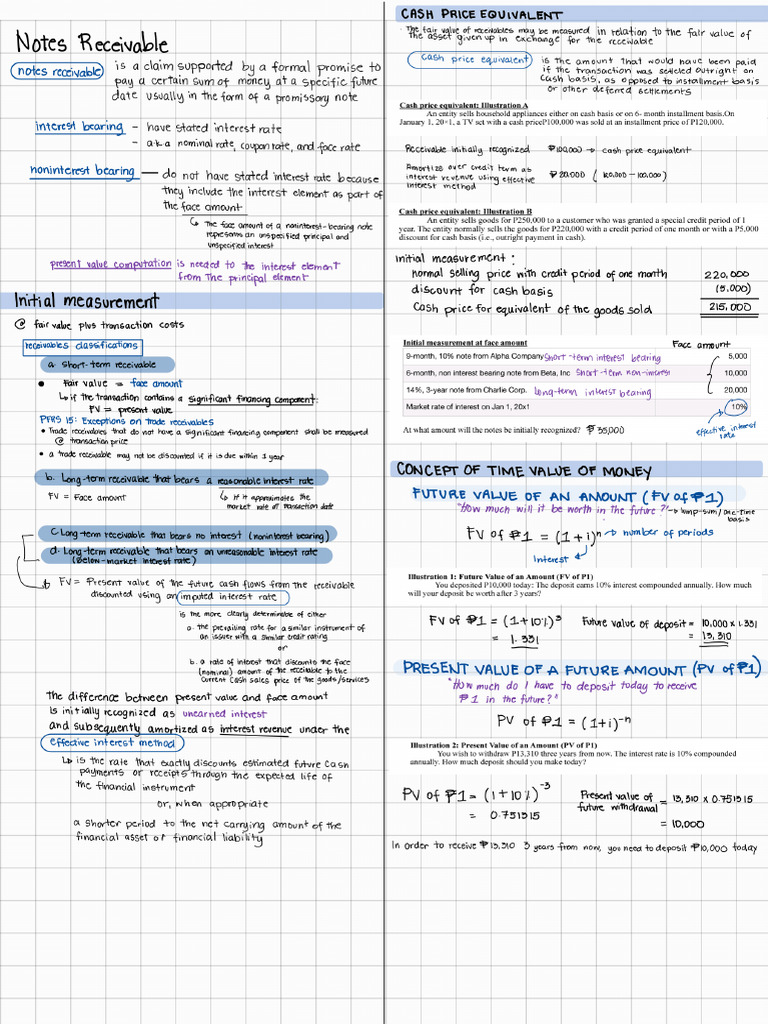 Notes Receivable
notes receivable is a claim supported by a formal promise to
pay a certain sum of money at a specific future
date usually in the form of a promissory note
interest bearing - have stated interest rate
- a.k.a nominal rate, coupon rate, and face rate
noninterest bearing — do not have stated interest rate because
they include the interest element as part of
the face amount
↳ the face amount of a noninterest-bearing note
represents an unspecified principal and
unspecified interest
present value computation is needed to the interest element
from the principal element
Initial measurement
@ fair value plus transaction costs
receivables classifications
a. short-term receivable
• Fair value = face amount
↳ if the transaction contains a significant financing component:
FV = present value
PFRS 15: Exceptions on trade receivables
• Trade receivables that do not have a significant financing component shall be measured
@ transaction price
• a trade receivable may not be discounted if it is due within 1 year
b. Long-term receivable that bears a reasonable interest rate
FV = Face amount ↳ if it approximate the
market rate at transaction date
c. Long-term receivable that bears no interest (noninterest bearing)
d. Long-term receivable that bears an unreasonable interest rate
(below-market interest rate)
FV = Present value of the future cash flows from the receivable
discounted using an imputed interest rate
is the more clearly determinable of either
a. the prevailing rate for a similar instrument of
an issuer with a similar credit rating
or
b. a rate of interest that discounts the face
(nominal) amount of the receivable to the
current cash sales price of the goods/services
The difference between present value and face amount
is initially recognized as unearned interest
and subsequently amortized as interest revenue under the
effective interest method
↳ is the rate that exactly discounts estimated future cash
payments or receipts through the expected life of
the financial instrument
or, when appropriate
a shorter period to the net carrying amount of the
financial asset or financial liability
CASH PRICE EQUIVALENT
· The fair value of receivables may be measured in relation to the fair value of
the asset given up in exchange for the receivable
cash price equivalent is the amount that would have been paid
if the transaction was settled outright on
cash basis, as opposed to installment basis
or other deferred settlements
Cash price equivalent: Illustration A
An entity sells household appliances either on cash basis or on 6- month installment basis.On
January 1, 20×1, a TV set with a cash priceP100,000 was sold at an installment price of P120,000.
Receivable initially recognized ₱100,000 → cash price equivalent
Amortize over credit term as
interest revenue using effective
interest method
₱20,000 (120,000 - 100,000)
Cash price equivalent: Illustration B
An entity sells goods for P250,000 to a customer who was granted a special credit period of 1
year. The entity normally sells the goods for P220,000 with a credit period of one month or with a P5,000
discount for cash basis (i.e., outright payment in cash).
Initial measurement:
normal selling price with credit period of one month 220,000
discount for cash basis (5,000)
Cash price for equivalent of the goods sold 215,000
Initial measurement at face amount Face amount
9-month, 10% note from Alpha Company short-term interest bearing 5,000
6-month, non interest bearing note from Beta, Inc short-term non-interest 10,000
14%, 3-year note from Charlie Corp. Long-term interest bearing 20,000
Market rate of interest on Jan 1, 20x1 10%
At what amount will the notes be initially recognized? ₱35,000
effective interest
rate
CONCEPT OF TIME VALUE OF MONEY
FUTURE VALUE OF AN AMOUNT (FV of ₱1)
"How much will it be worth in the future?" → lump-sum/one-time
basis
FV of ₱1 = (1 + i)ⁿ → number of periods
Interest
Illustration 1: Future Value of an Amount (FV of P1)
You deposited P10,000 today: The deposit earns 10% interest compounded annually. How much
will your deposit be worth after 3 years?
FV of ₱1 = (1+10%)³
= 1.331
Future value of deposit = 10,000 x 1.331
= 13,310
PRESENT VALUE OF A FUTURE AMOUNT (PV of ₱1)
"How much do I have to deposit today to receive
₱1 in the future?"
PV of ₱1 = (1+i)⁻ⁿ
Illustration 2: Present Value of an Amount (PV of P1)
You wish to withdraw P13,310 three years from now. The interest rate is 10% compounded
annually. How much deposit should you make today?
PV of ₱1 = (1+10%)⁻³
= 0.751315
Present value of
future withdrawal = 13,310 x 0.751315
= 10,000
In order to receive ₱13,310 3 years from now, you need to deposit ₱10,000 today